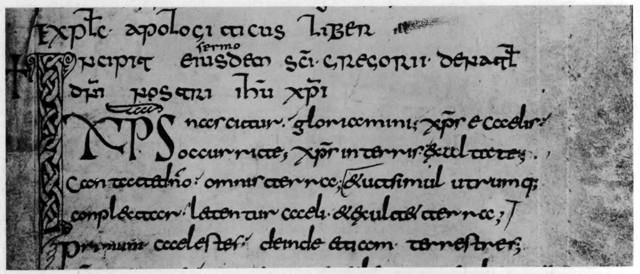 Expl̄c apologiticus liber
sermo
Incipit eiusdem sc̄i gregorii de natl̄
dn̄i nostri ih̄u xp̄i
XPS nascitur. gloriamini; xp̄s e caelis.
occurrite; xp̄s in terris exultate;
Cantate dn̄o omnis terrae; & ut simul utrumq;
conplectar. letentur caeli. & exultet terrae;
Primum caelestes. deinde etiam terrestres;